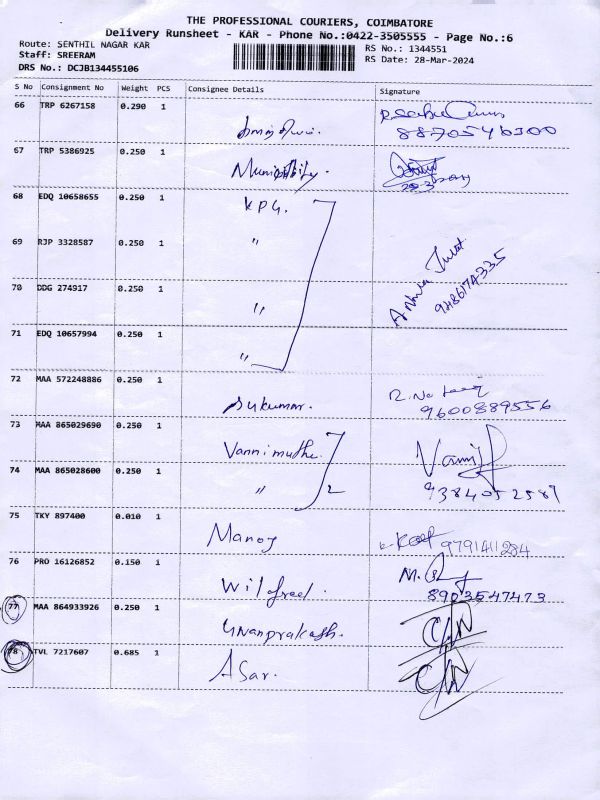 THE PROFESSIONAL COURIERS, COIMBATORE
Delivery Runsheet - KAR - Phone No.:0422-3505555 - Page No.:6
Route: SENTHIL NAGAR KAR
RS No.: 1344551
Staff: SREERAM
RS Date: 28-Mar-2024
DRS No.: DCJB134455106
S No Consignment No Weight PCS Consignee Details Signature
66 TRP 6267158 0.290 1
8870546300
67 TRP 5386925 0.250 1
68 EDQ 10658655 0.250 1 KPG.
69 RJP 3328587 0.250 1 "
9486174335
70 DDG 274917 0.250 1 "
71 EDQ 10657994 0.250 1 "
72 MAA 572248886 0.250 1 Sukumar.
9600889556
73 MAA 865029690 0.250 1 Vannimuthu.
74 MAA 865028600 0.250 1 " 2
9384052587
75 TKY 897400 0.010 1 Manoj
9791411284
76 PRO 16126852 0.150 1 Wilfred.
8903547473
77 MAA 864933926 0.250 1 Gnanprakash.
78 TVL 7217607 0.685 1 Asar.